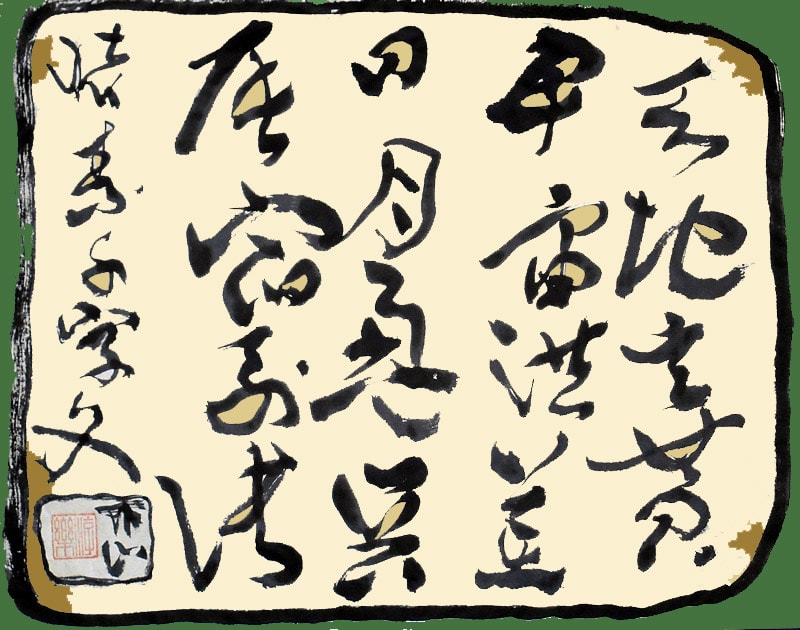 天地玄黄
宇宙洪荒
日月盈昃
辰宿列張
懐素千字文